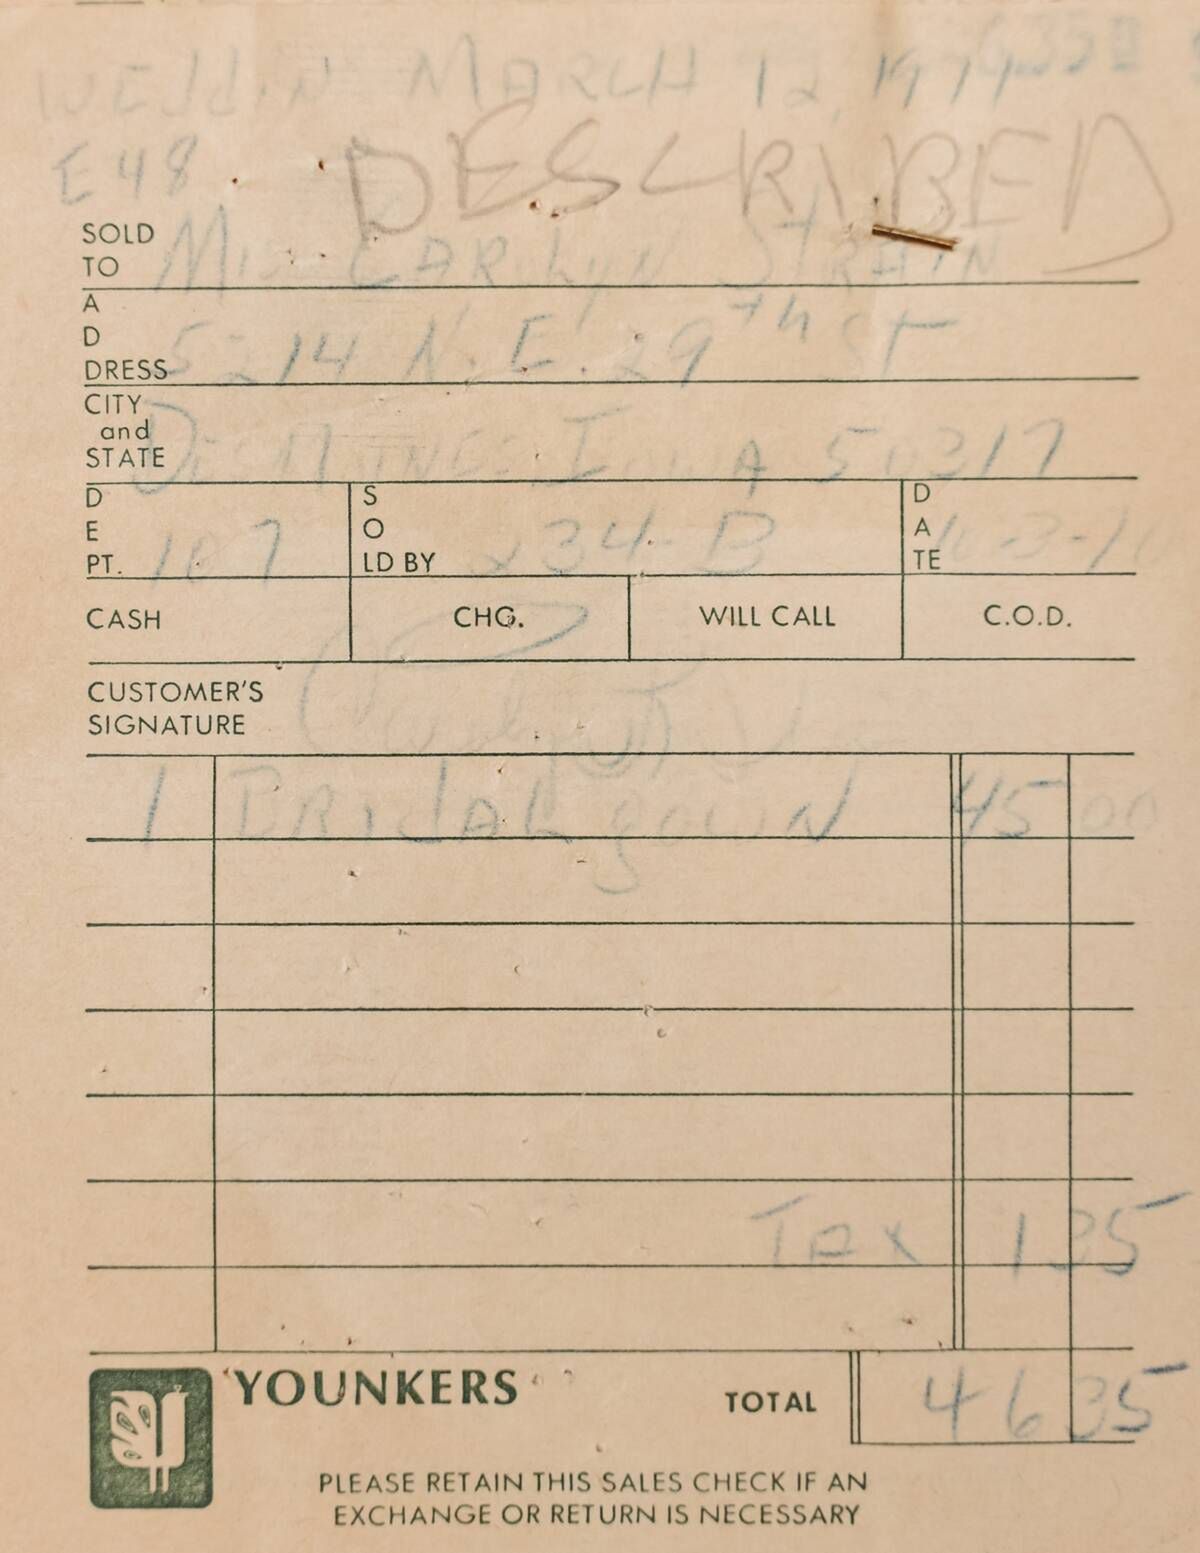 MARCH 12, 197
E48 DESCRIBED
SOLD TO Miss CAROLYN STRAIN
ADDRESS 5214 N.E. 29th St
CITY and STATE Des Moines, Iowa 50317
DEPT. 107 SOLD BY 234-B DATE
CASH CHG. WILL CALL C.O.D.
CUSTOMER'S SIGNATURE
1 BRIDAL gown 45 00
TAX 1 35
YOUNKERS TOTAL 46 35
PLEASE RETAIN THIS SALES CHECK IF AN
EXCHANGE OR RETURN IS NECESSARY